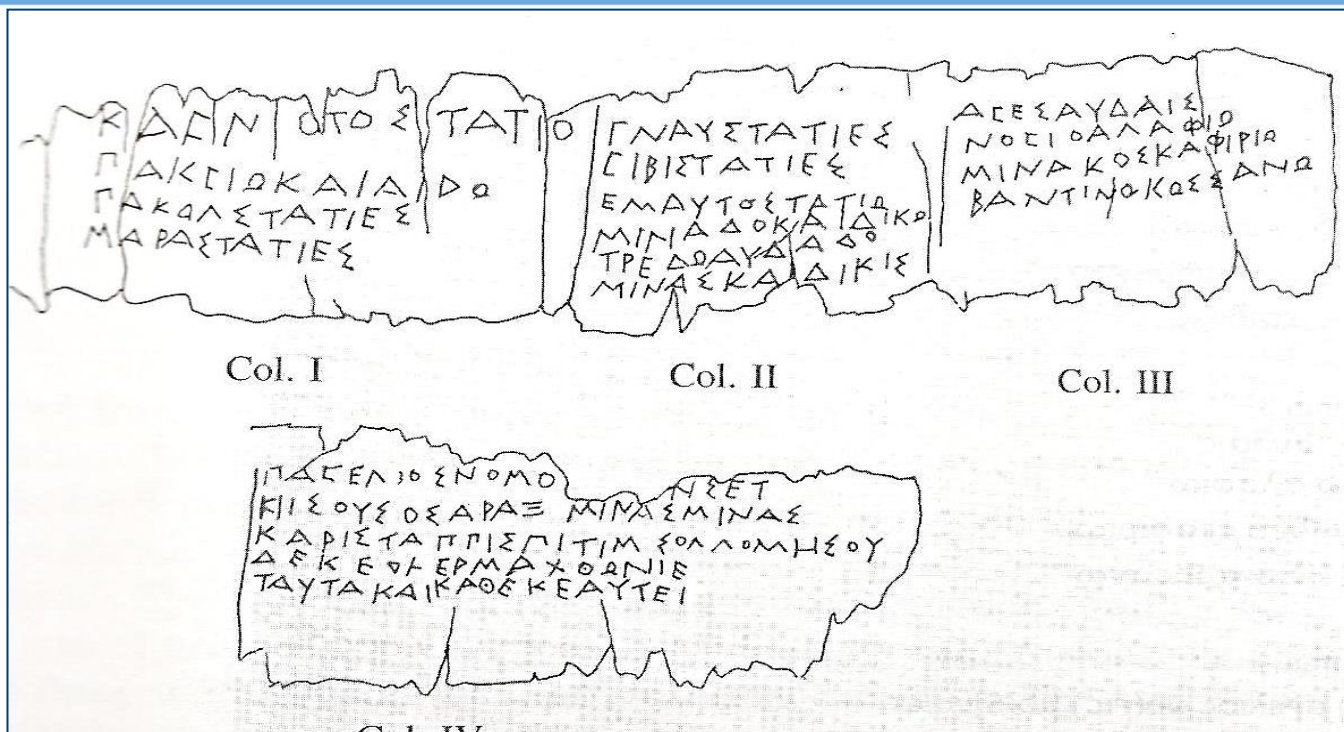 ΚΑΕΝΙΟΤΟΣ ΤΑΤΙΟ
ΠΑΚϹΙΩΚΑΙΑΙΔΩ
ΠΑΚΩΛΣΤΑΤΙΕΣ
ΜΑΡΑΣΤΑΤΙΕΣ
Col. I
ΓΝΑΥΣΤΑΤΙΕΣ
ϹΙΒΙΣΤΑΤΙΕΣ
ΕΜΑΥΤΟΣΤΑΤΙΩ
ΜΙΝΙΑΔΟΚΑΙΔΙΚΩ
ΤΡΕΔΩΑΥΔΑΔΟ
ΜΙΝΑΣΚΑΔΙΚΙΣ
Col. II
ΑϹΕΣΑΥΔΑΙΣ
ΝΟϹΙΟΑΛΑΦΙΩ
ΜΙΝΑΚΟΣΚΑΦΙΡΙΩ
ΒΑΝΤΙΝΩΚΩΣΣΑΝΩ
Col. III
ΠΑϹΕΛΙΟΣΝΟΜΟ ΝΣΕΤ
ΚΙΣΟΥΣΟΣΑΡΑΞ ΜΙΝΑΣΜΙΝΑΣ
ΚΑΡΙΣΤΑΠΠΙΣΠΙΤΙΜΣΟΛΛΟΜΗΣΟΥ
ΔΕΚΕΟΗΕΡΜΑΧΘΩΝΙΕ
ΤΑΥΤΑΚΑΙΚΑΘΕΚΕΑΥΤΕΙ
Col. IV